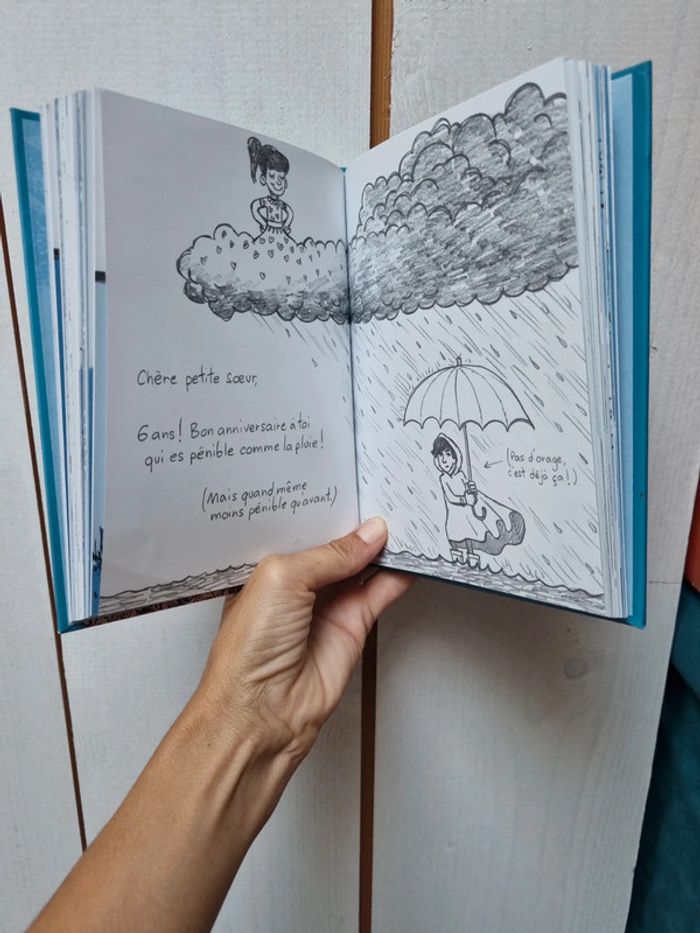 Chère petite sœur,
6 ans! Bon anniversaire à toi
qui es pénible comme la pluie!
(Mais quand même
moins pénible qu'avant.)
(Pas d'orage,
c'est déjà ça!)